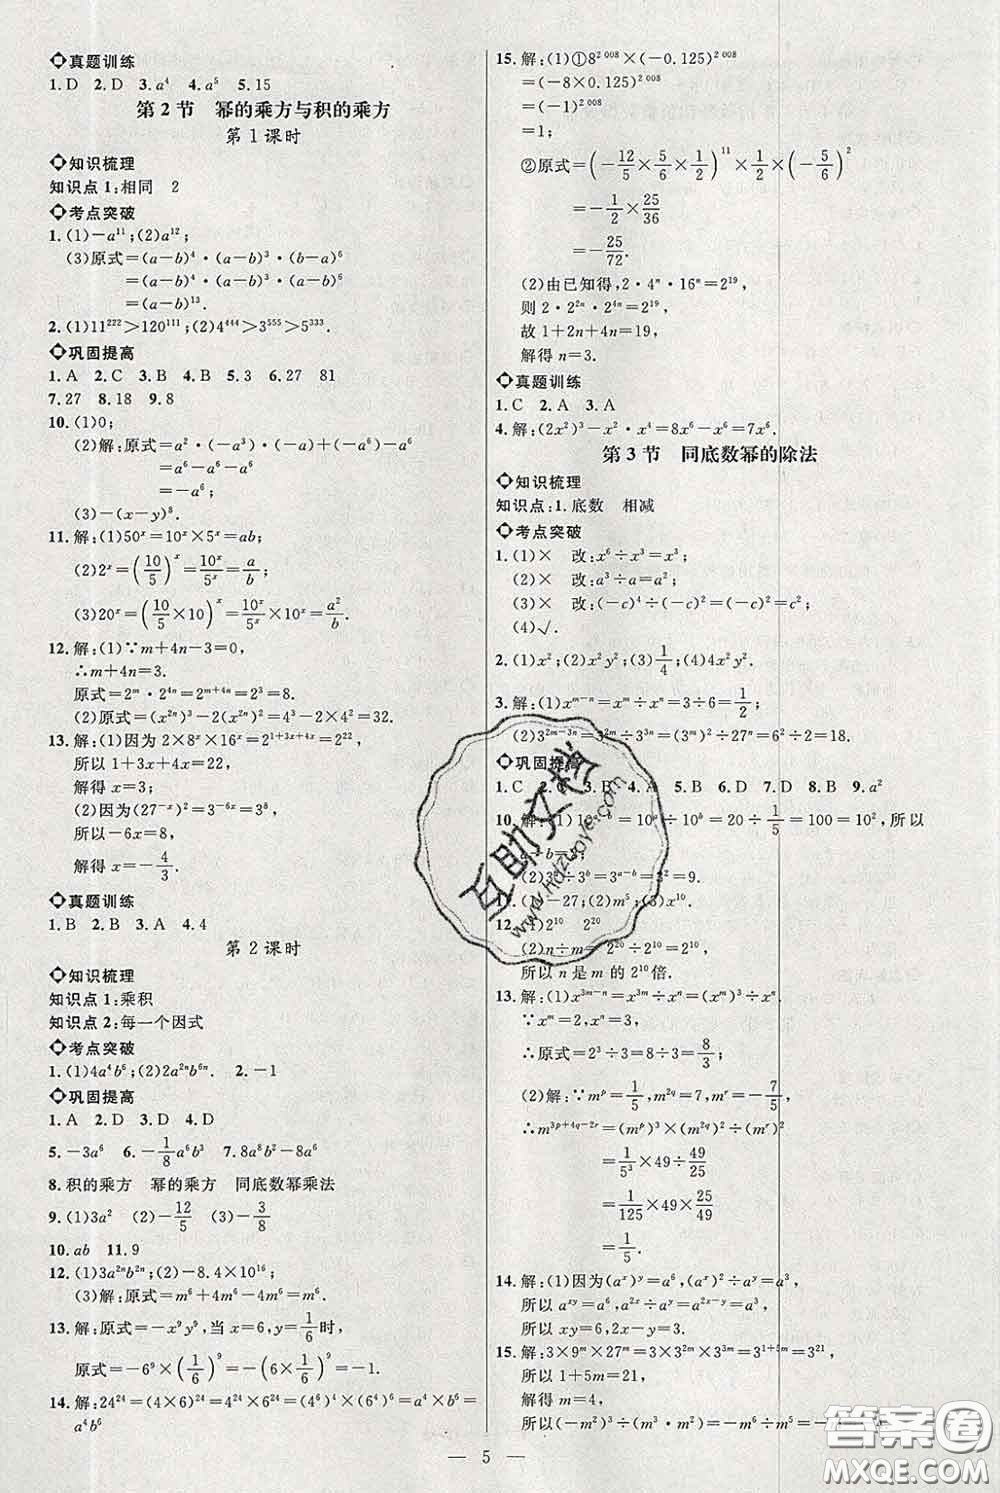 真题训练
1. D 2. D 3. a⁴ 4. a⁵ 5. 15
第 2 节 幂的乘方与积的乘方
第 1 课时
知识梳理
知识点 1:相同 2
考点突破
1. (1)-a¹¹;(2)a¹²;
(3)原式=(a-b)⁴·(a-b)³·(b-a)⁶
=(a-b)⁴·(a-b)³·(a-b)⁶
=(a-b)¹³.
2. (1)11²²²>120¹¹¹;(2)4⁴⁴⁴>3⁵⁵⁵>5³³³.
巩固提高
1. A 2. C 3. B 4. B 5. 3 6. 27 81
7. 27 8. 18 9. 8
10. (1)0;
(2)解:原式=a²·(-a³)·(-a)+(-a⁶)-a⁶
=a⁶-a⁶-a⁶
=-a⁶;
(3)-(x-y)⁸.
11. 解:(1)50ˣ=10ˣ×5ˣ=ab;
(2)2ˣ=(10/5)ˣ=10ˣ/5ˣ=a/b;
(3)20ˣ=(10/5×10)ˣ=10ˣ/5ˣ×10ˣ=a²/b.
12. 解:(1)∵m+4n-3=0,
∴m+4n=3.
原式=2ᵐ·2⁴ⁿ=2ᵐ⁺⁴ⁿ=2³=8.
(2)原式=(x²ⁿ)³-2(x²ⁿ)²=4³-2×4²=32.
13. 解:(1)因为 2×8ˣ×16ˣ=2¹⁺³ˣ⁺⁴ˣ=2²²,
所以 1+3x+4x=22,
解得 x=3;
(2)因为(27⁻ˣ)²=3⁻⁶ˣ=3⁸,
所以-6x=8,
解得 x=-4/3.
真题训练
1. B 2. B 3. A 4. 4
第 2 课时
知识梳理
知识点 1:乘积
知识点 2:每一个因式
考点突破
1. (1)4a⁴b⁶;(2)2a²ⁿb⁶ⁿ. 2. -1
巩固提高
1. A 2. D 3. D 4. D
5. -3a⁶ 6. -1/8a⁶b³ 7. 8a⁶-8a⁶
8. 积的乘方 幂的乘方 同底数幂乘法
9. (1)3a² (2)-12/5 (3)-3/8
10. ab 11. 9
12. (1)3a²ⁿb²ⁿ;(2)-8.4×10¹⁶;
(3)解:原式=m⁶+4m⁶-4m⁶=m⁶.
13. 解:原式=-x⁹y⁹,当 x=6,y=1/6时,
原式=-6⁹×(1/6)⁹=-(6×1/6)⁹=-1.
14. 解:24²⁴=(4×6)²⁴=4²⁴×6²⁴=(4⁶)⁴×(6⁴)⁶=a⁴×b⁶=
a⁴b⁶
15. 解:(1)①8²⁰⁰⁸×(-0.125)²⁰⁰⁸
=(-8×0.125)²⁰⁰⁸
=(-1)²⁰⁰⁸
=1;
②原式=(-12/5×5/6×1/2)¹¹×1/2×(-5/6)²
=-1/2×25/36
=-25/72.
(2)由已知得,2·4ⁿ·16ⁿ=2¹⁹,
则 2·2²ⁿ·2⁴ⁿ=2¹⁹,
故 1+2n+4n=19,
解得 n=3.
真题训练
1. C 2. A 3. A
4. 解:(2x²)³-x²·x⁴=8x⁶-x⁶=7x⁶.
第 3 节 同底数幂的除法
知识梳理
知识点:1. 底数 相减
考点突破
1. (1)× 改:x⁶÷x³=x³;
(2)× 改:a³÷a=a²;
(3)× 改:(-c)⁴÷(-c)²=(-c)²=c²;
(4)√.
2. (1)x²;(2)x²y²;(3)1/4;(4)4x²y².
3. 解:(1)xᵐ⁻ⁿ=xᵐ÷xⁿ=3÷6=1/2;
(2)3²ᵐ⁻³ⁿ=3²ᵐ÷3³ⁿ=(3ᵐ)²÷27ⁿ=6²÷2=18.
巩固提高
1. C 2. 3. D 4. A 5. A 6. D 7. D 8. B 9. a²
10. 解:(1)10ᵃ⁻ᵇ=10ᵃ÷10ᵇ=20÷1/5=100=10²,所以
a-b=2;
(2)3ᵃ÷3ᵇ=3ᵃ⁻ᵇ=3²=9.
11. (1)-27;(2)m⁵;(3)x¹⁰.
12. (1)2¹⁰ 2²⁰
(2)n÷m=2²⁰÷2¹⁰=2¹⁰,
所以 n 是 m 的 2¹⁰倍.
13. 解:(1)x³ᵐ⁻ⁿ=x³ᵐ÷xⁿ=(xᵐ)³÷xⁿ,
∵xᵐ=2,xⁿ=3,
∴原式=2³÷3=8÷3=8/3;
(2)解:∵mᵖ=1/5,m²q=7,mʳ=-7/5,
∴m³ᵖ⁺⁴q⁻²ʳ=(mᵖ)³×(m²q)²÷(mʳ)²
=1/5³×49÷49/25
=1/125×49×25/49
=1/5.
14. 解:(1)因为(aˣ)ʸ=a⁶,(aˣ)²÷aʸ=a³,
所以 aˣʸ=a⁶,a²ˣ÷aʸ=a²ˣ⁻ʸ=a³,
所以 xy=6,2x-y=3.
15. 解:3×9ᵐ×27ᵐ=3×3²ᵐ×3³ᵐ=3¹⁺⁵ᵐ=3²¹,
所以 1+5m=21,
解得 m=4,
所以(-m²)³÷(m³·m²)=-m⁶÷m⁵=-m=-4.
— 5 —
互助文档
www.hdzuoye.com
答案圈
MXQE.COM